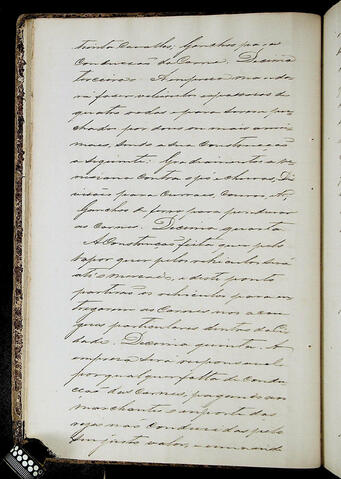 trinta Cavallos; Ganchos para
Conducção da Carne. Decima
terceira. A empresa manda-
rá fazer vehiculos expressos de
quatro rodas para serem pu-
chados por dous ou mais ani-
maes, sendo a sua Construcção
a seguinte:
contra o pó e chuvas, Di
visão para Couros,
Ganchos de ferro para pendurar
as Carnes. Decima quarta
A Conducção feita quer pelo
Vapor quer pelos vehiculos será
até o Mercado, e deste ponto
partirão os vehiculos para en
tregarem as Carnes nos açou
gues particulares dentro da Ci
dade. Decima quinta. A
empresa será responsavel
por qualquer falta de Conduc
ção das Carnes, pagando aos
marchantes a importe das
rezes não Conduzidas pelo
seu justo valor,